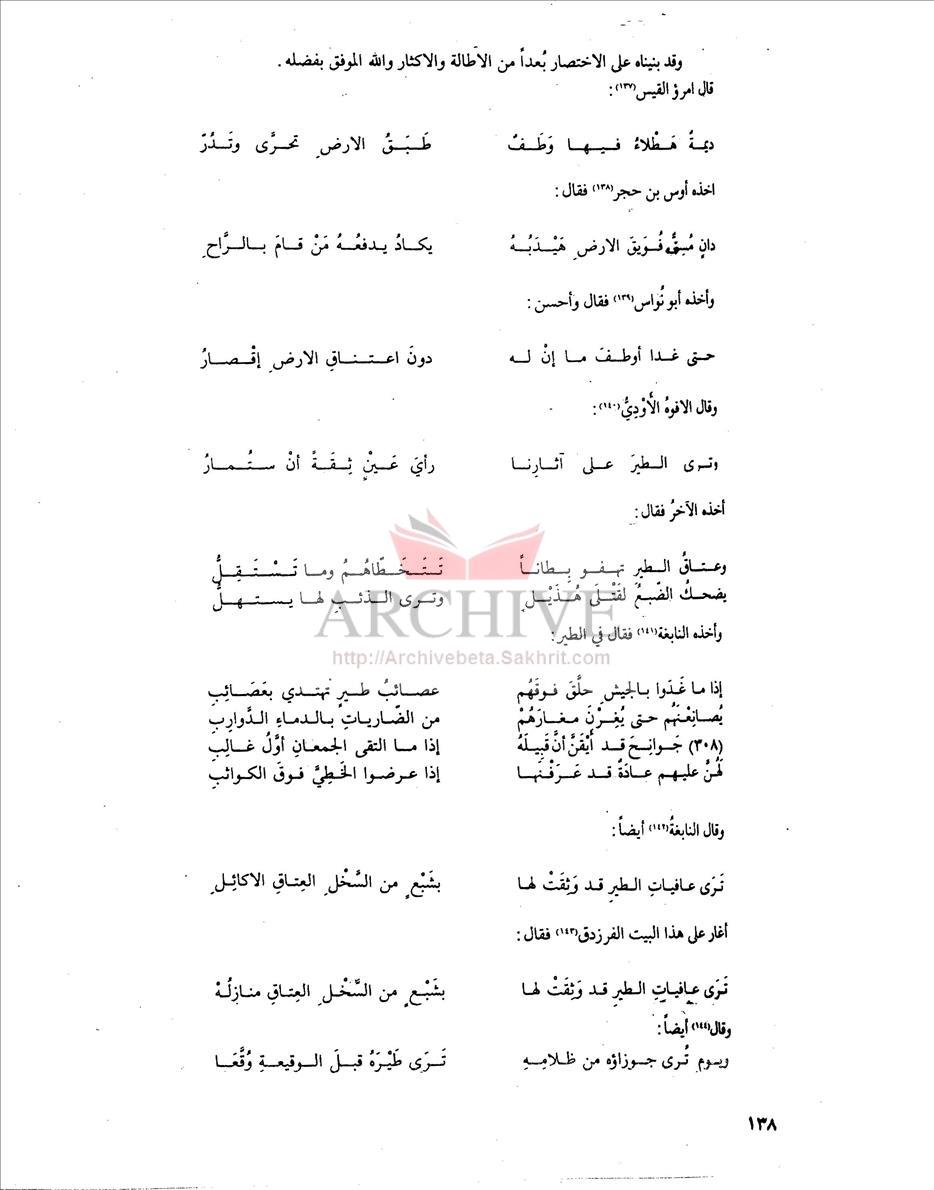 وقد بنيناه على الاختصار بُعداً من الأطالة والاكثار والله الموفق بفضله .
قال امرؤ القيس(١٣٧):
ديمةٌ هَطْلاءُ فيها وَطَفٌ طَبَقُ الارضِ تحرَّى وتَدُرّ
اخذه أوس بن حجر(١٣٨) فقال :
دانٍ مُسِفٌّ فُوَيقَ الارضِ هَيْدَبُهُ يكادُ يدفعُهُ مَنْ قامَ بالرَّاحِ
وأخذه أبو نُواس(١٣٩) فقال وأحسن :
حتى غدا أوطفَ ما إنْ له دونَ اعتناقِ الارضِ إقْصارُ
وقال الافوهُ الأَوْدِيُّ(١٤٠):
وترى الطيرَ على آثارِنا رأيَ عَيْنٍ ثِقَةً أنْ ستُمارُ
أخذه الآخرُ فقال :
وعتاقُ الطيرِ تهفو بِطاناً تَتَخَطّاهُمُ وما تَسْتَقِلُّ
يضحكُ الضّبعُ لقَتْلَى هُذَيْلٍ وترى الذئبَ لها يستهلُّ
وأخذه النابغة(١٤١) فقال في الطير:
ARCHIVE
http://Archivebeta.Sakhrit.com
إذا ما غَدَوا بالجيشِ حلَّقَ فوقَهُم عصائبُ طيرٍ تهتدي بعَصَائِبِ
يُصانِعْنَهُم حتى يُغِرْنَ مغارَهُمْ من الضّارياتِ بالدماءِ الدَّوارِبِ
(٣٠٨) جَوانِحَ قد أَيْقَنَّ أنَّ قَبِيلَهُ إذا ما التقى الجمعانِ أوَّلُ غالِبِ
لَهُنَّ عليهم عادَةٌ قد عَرَفْنَها إذا عرضوا الخَطِّيَّ فوقَ الكواثبِ
وقال النابغةُ(١٤٢) أيضاً :
تَرَى عافياتِ الطيرِ قد وَثِقَتْ لها بشَبْعٍ من السَّخْلِ العِتاقِ الاكائِلِ
أغار على هذا البيت الفرزدق(١٤٣) فقال :
تَرَى عافياتِ الطيرِ قد وَثِقَتْ لها بشَبْعٍ من السَّخْلِ العِتاقِ منازِلُهْ
وقال(١٤٤) أيضاً :
ويومٍ تُرى جوزاؤه من ظلامِهِ تَرَى طَيْرَهُ قبلَ الوقيعةِ وُقَّعَا
١٣٨